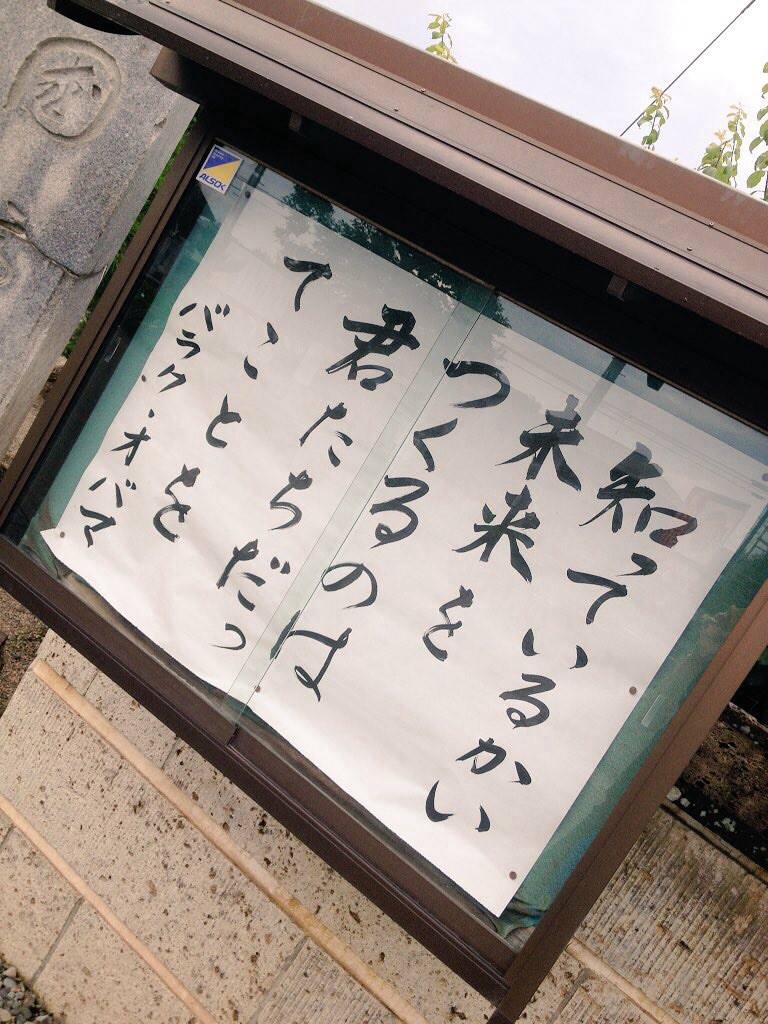 知っているかい
未来を
つくるのは
君たちだっ
てことを
バラク・オバマ
ALSOK